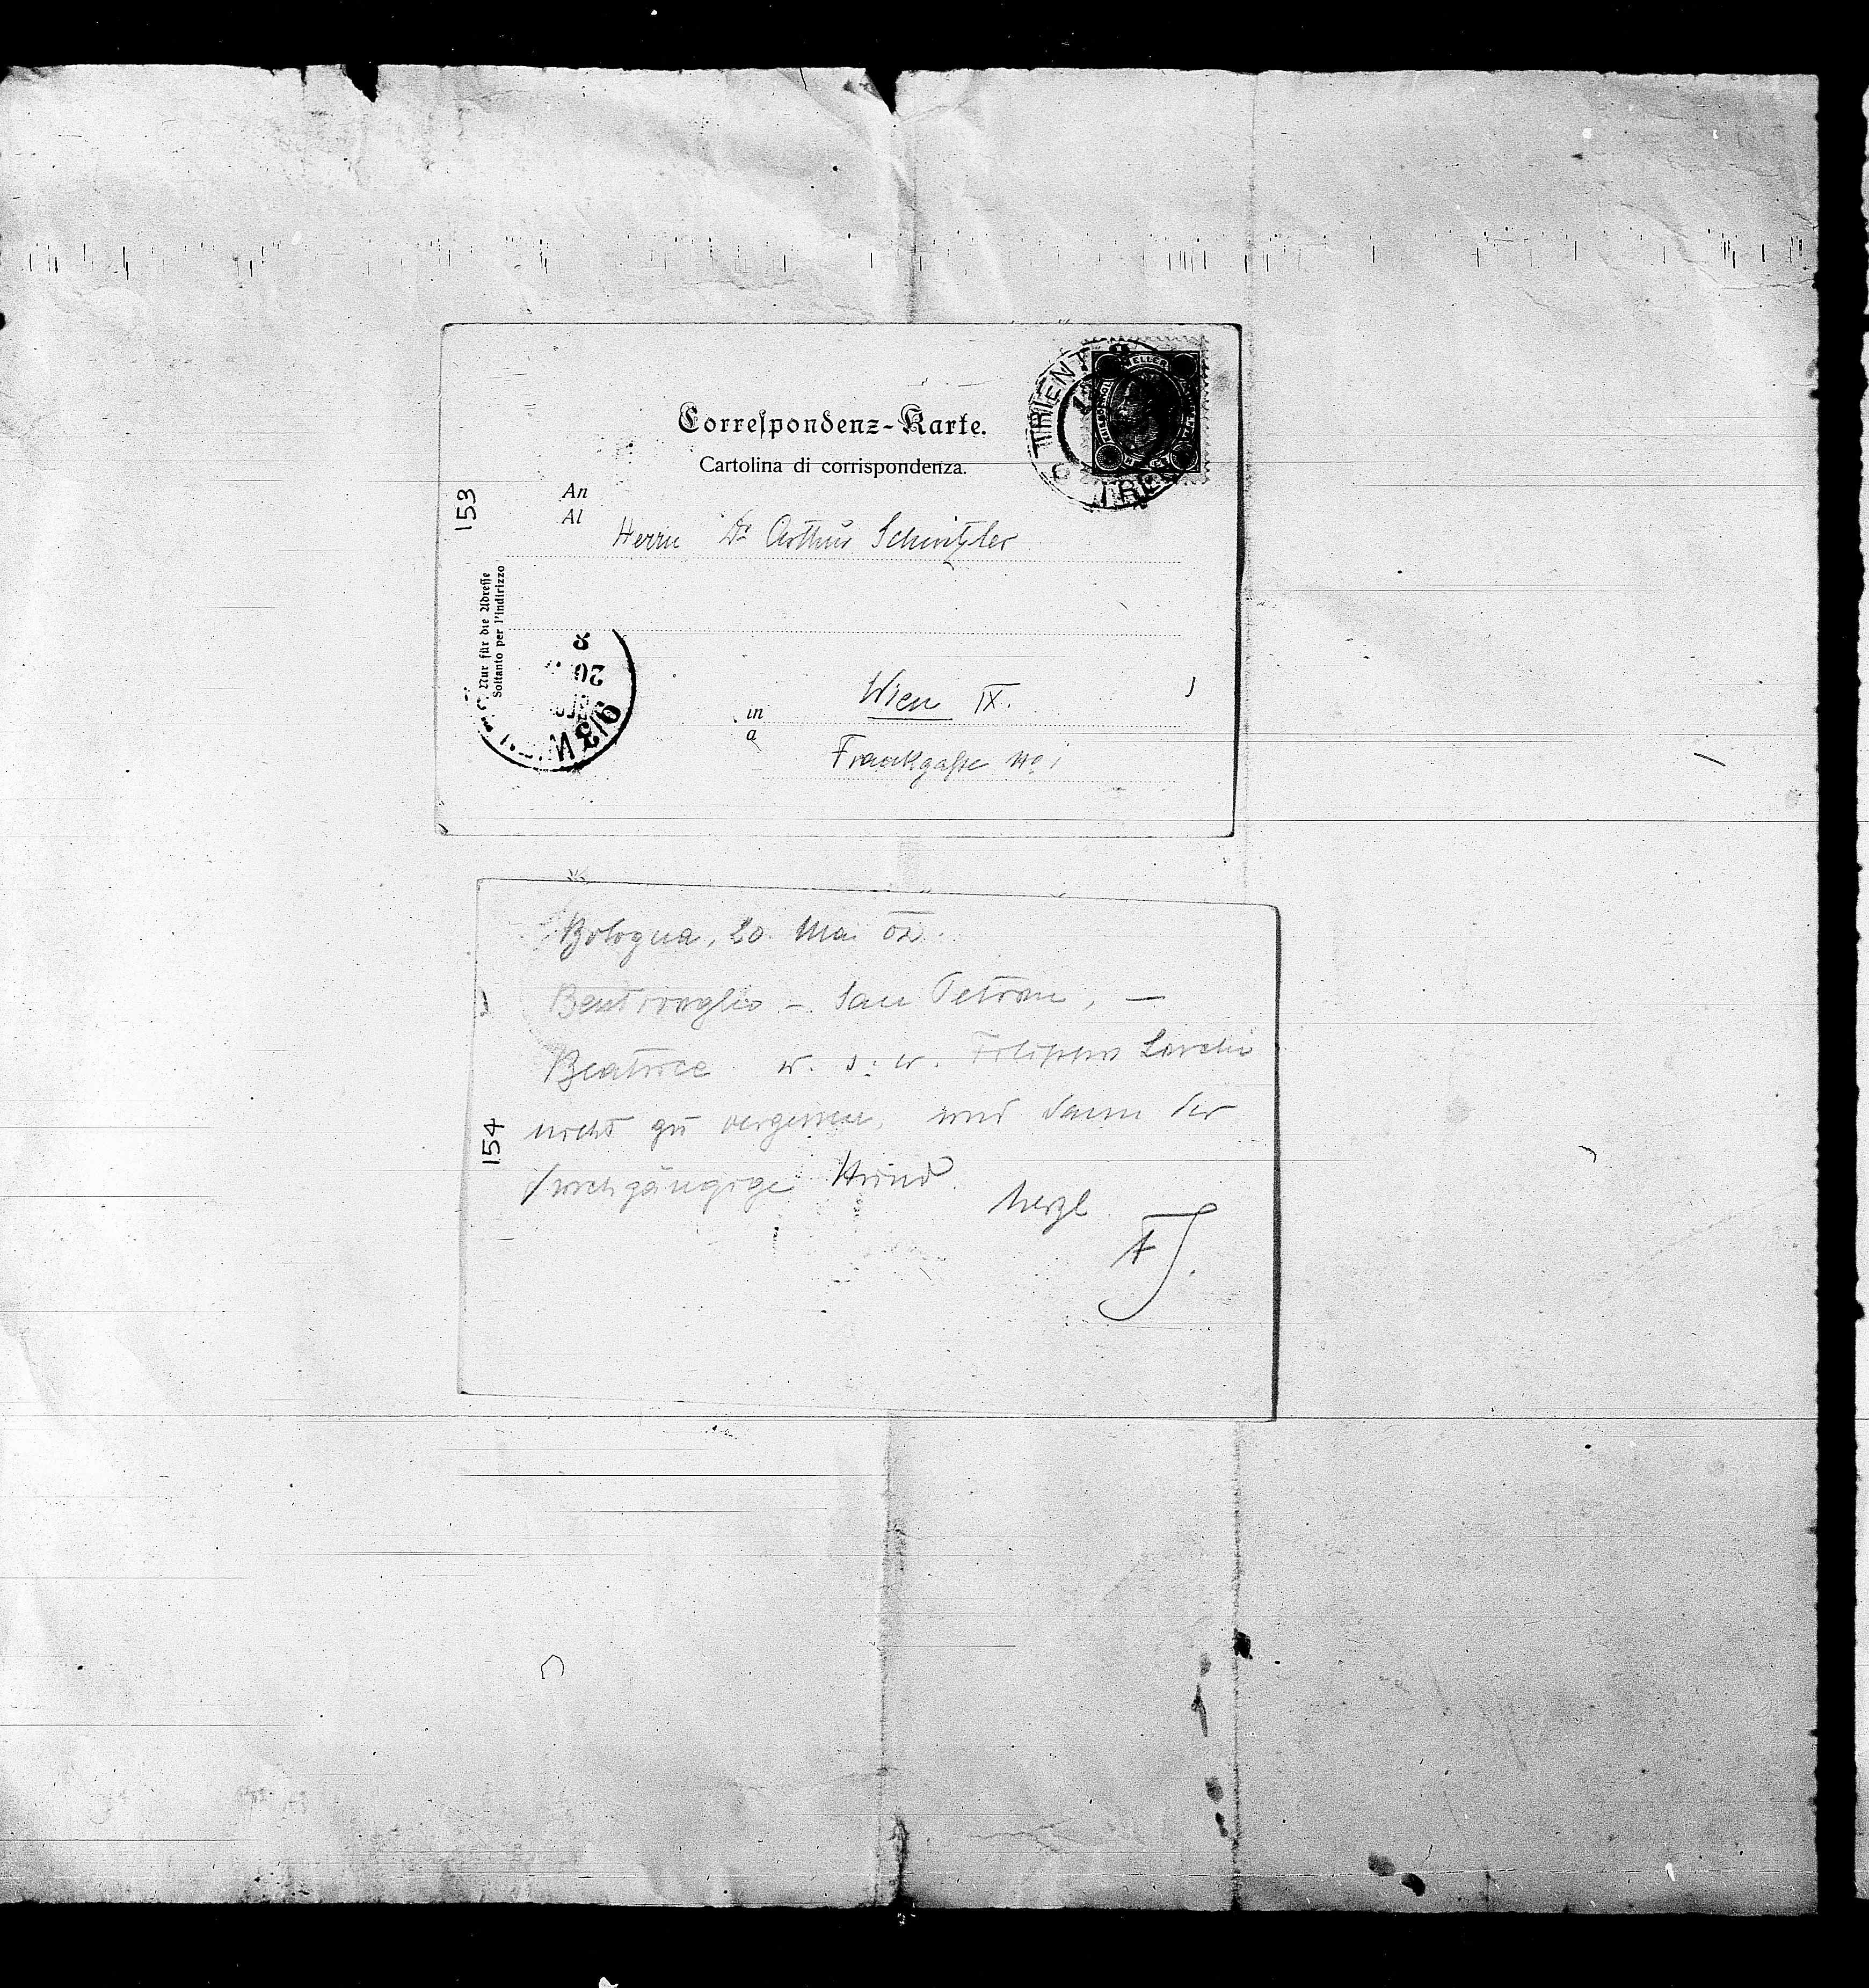 Correspondenz-Karte.
Cartolina di corrispondenza.
TRIENT
153
An
Al
Herrn Dr Arthur Schnitzler
Nur für die Adresse
Soltanto per l'indirizzo
in
a
Wien IX.
Frankgasse No 1
9/3 WIEN
20
Bologna, 20. Mai 02.
Bentivoglio – San Petronio, –
Beatrice u. s. w. Filippo
nicht zu vergessen, und dann der
durchgängige Hund.
herzl
154